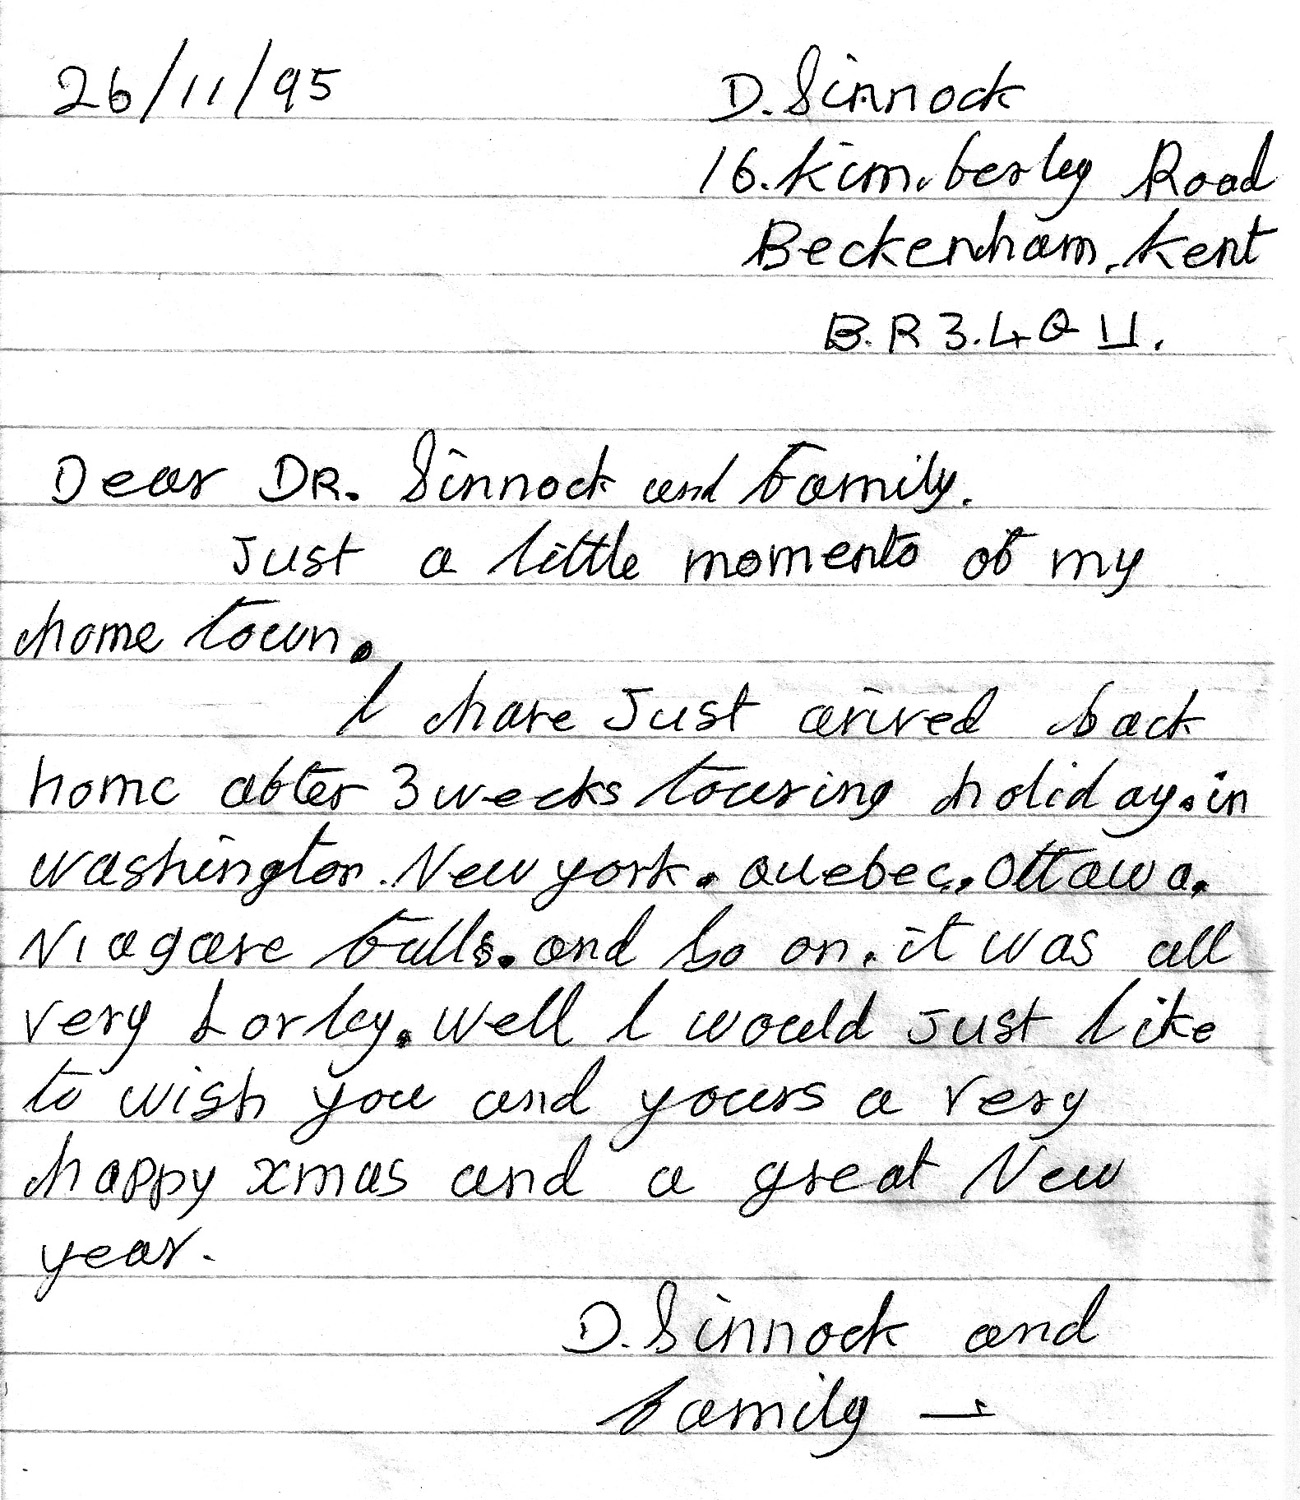 26/11/95
D. Sinnock
16. Kimberley Road
Beckenham, Kent
B.R3.4QU.
Dear DR. Sinnock and family.
Just a little momento of my
home town.
I have Just arived back
home after 3 weeks touring holiday. in
washington. New york. Quebec. Ottawa.
Niagare falls. and so on. it was all
very Lovley. Well I would Just like
to wish you and yours a very
happy xmas and a great New
year.
D. Sinnock and
family —